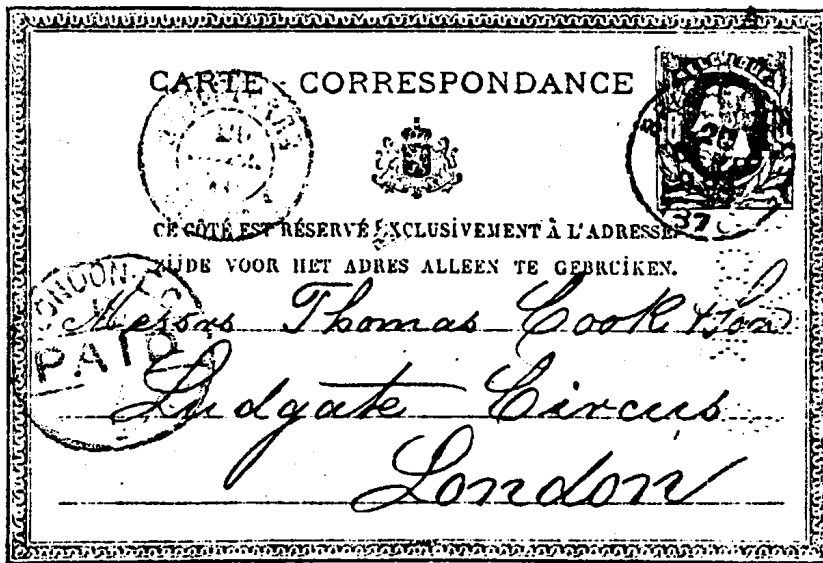 CARTE - CORRESPONDANCE
CE CÔTÉ EST RÉSERVÉ EXCLUSIVEMENT À L'ADRESSE.
ZIJDE VOOR HET ADRES ALLEEN TE GEBRUIKEN.
LONDON E.C
PAID
Messrs Thomas Cook & Son
Ludgate Circus
London